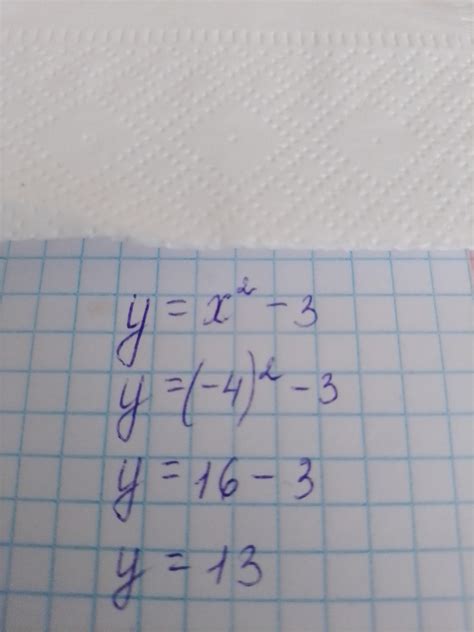 y = x² - 3
y = (-4)² - 3
y = 16 - 3
y = 13